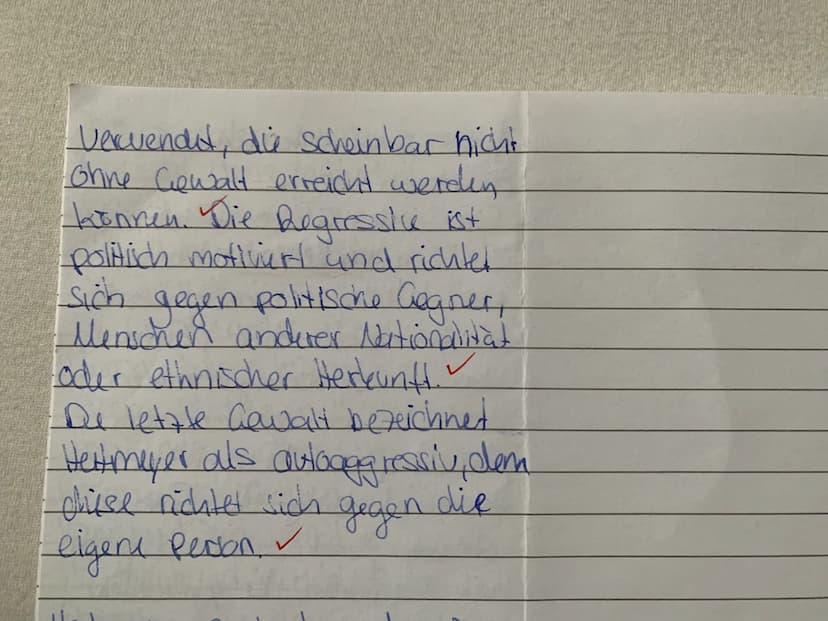 verwendet, die scheinbar nicht
ohne Gewalt erreicht werden
können. Die Regressive ist
politich motiviert und richtet
sich gegen politische Gegner,
Menschen anderer Nationalität
oder ethnischer Herkunft.
Die letzte Gewalt bezeichnet
Heitmeyer als autoaggressiv, denn
diese richtet sich gegen die
eigene Person.